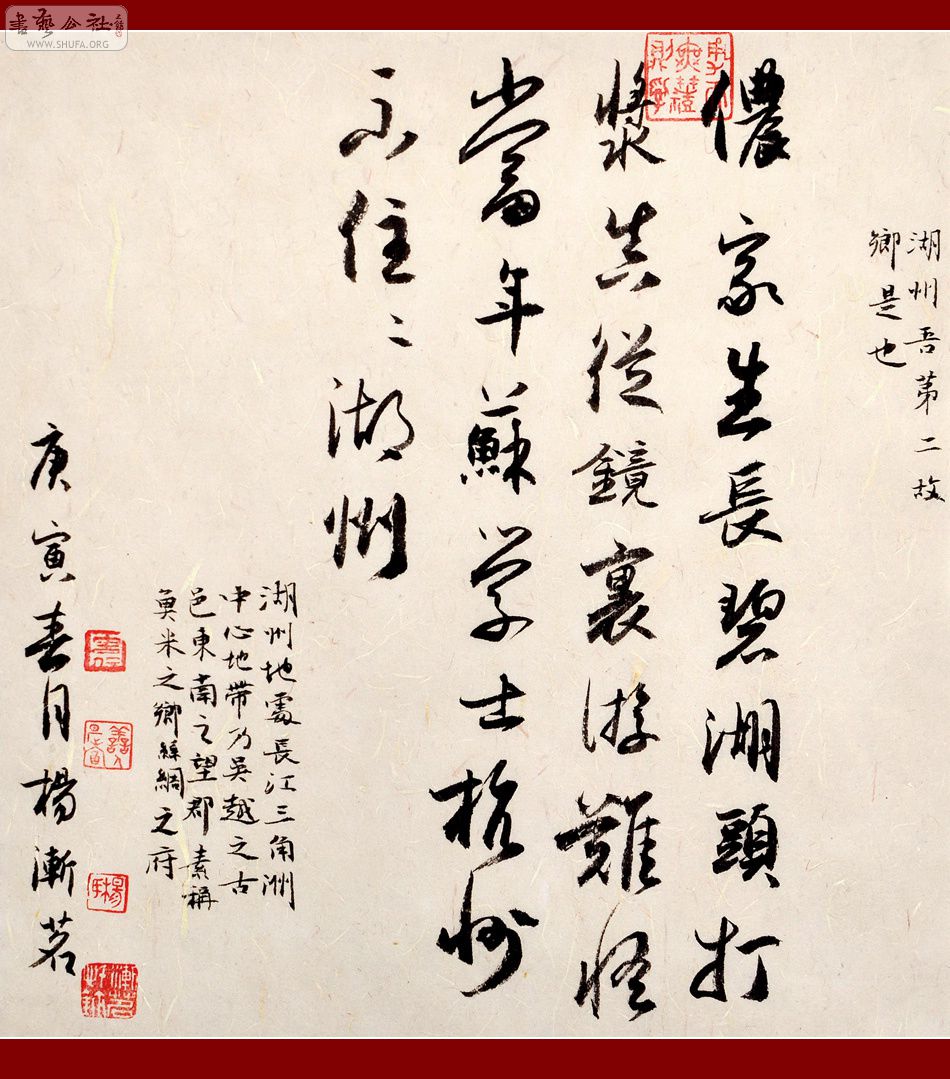 書藝公社
WWW.SHUFA.ORG
湖州吾第二故
鄉是也
儂家生長碧湖頭打
漿真從鏡裏游難怪
當年蘇学士杭州
不住〻湖州
湖州地處長江三角洲
中心地帶乃吳越之古
邑東南之望郡素稱
魚米之鄉絲綢之府
庚寅春月楊漸茗